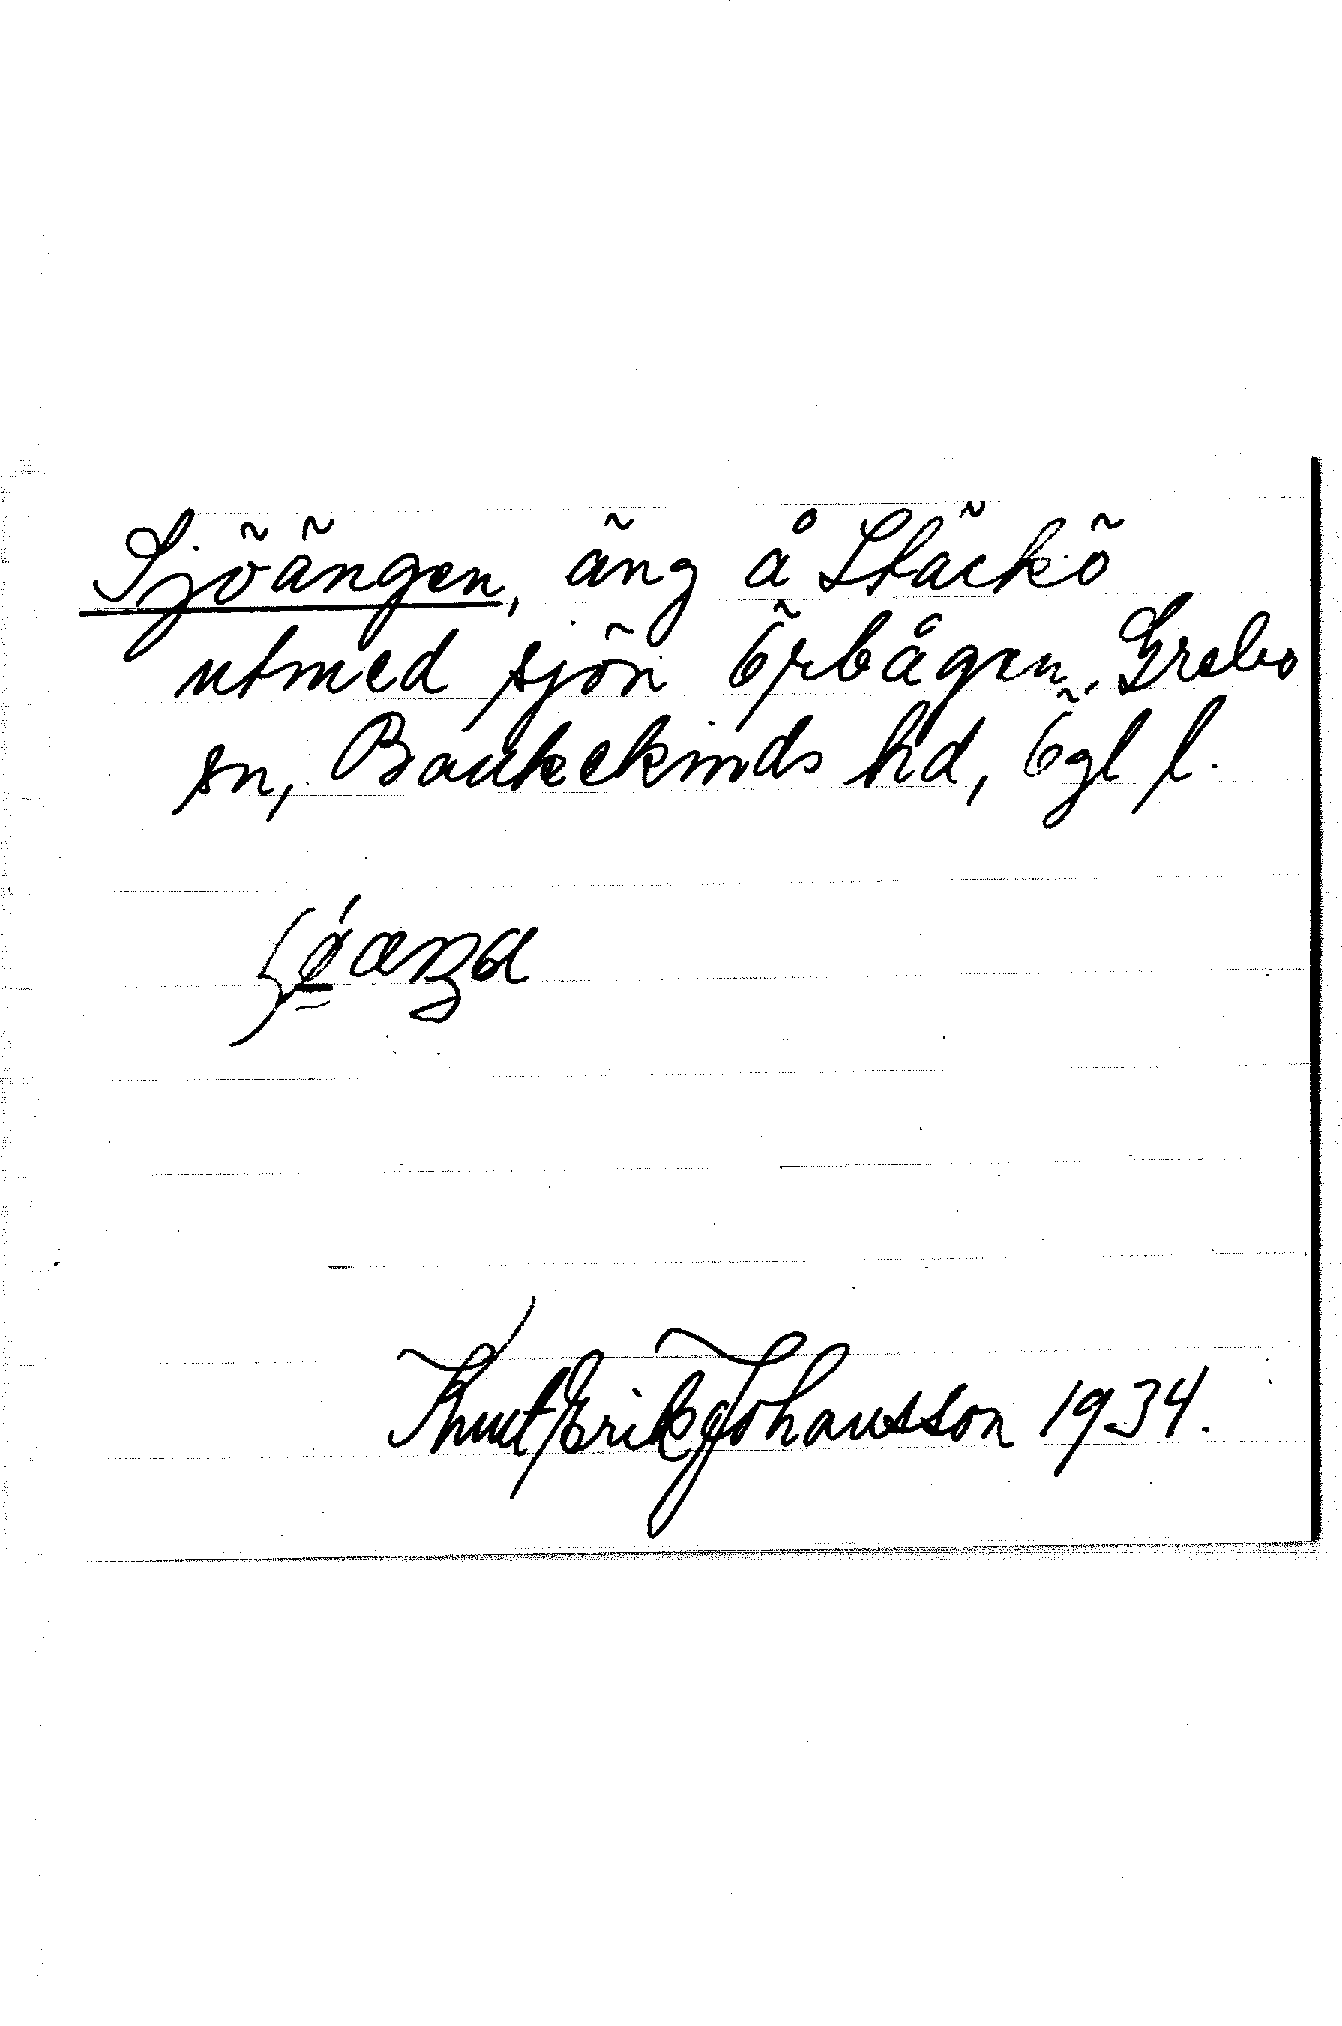 Sjöängen, äng å Stäckö
utmed sjön Örbågen, Grebo
sn, Bankekinds hd, Ögl l.
Knut Erik Johansson 1934.